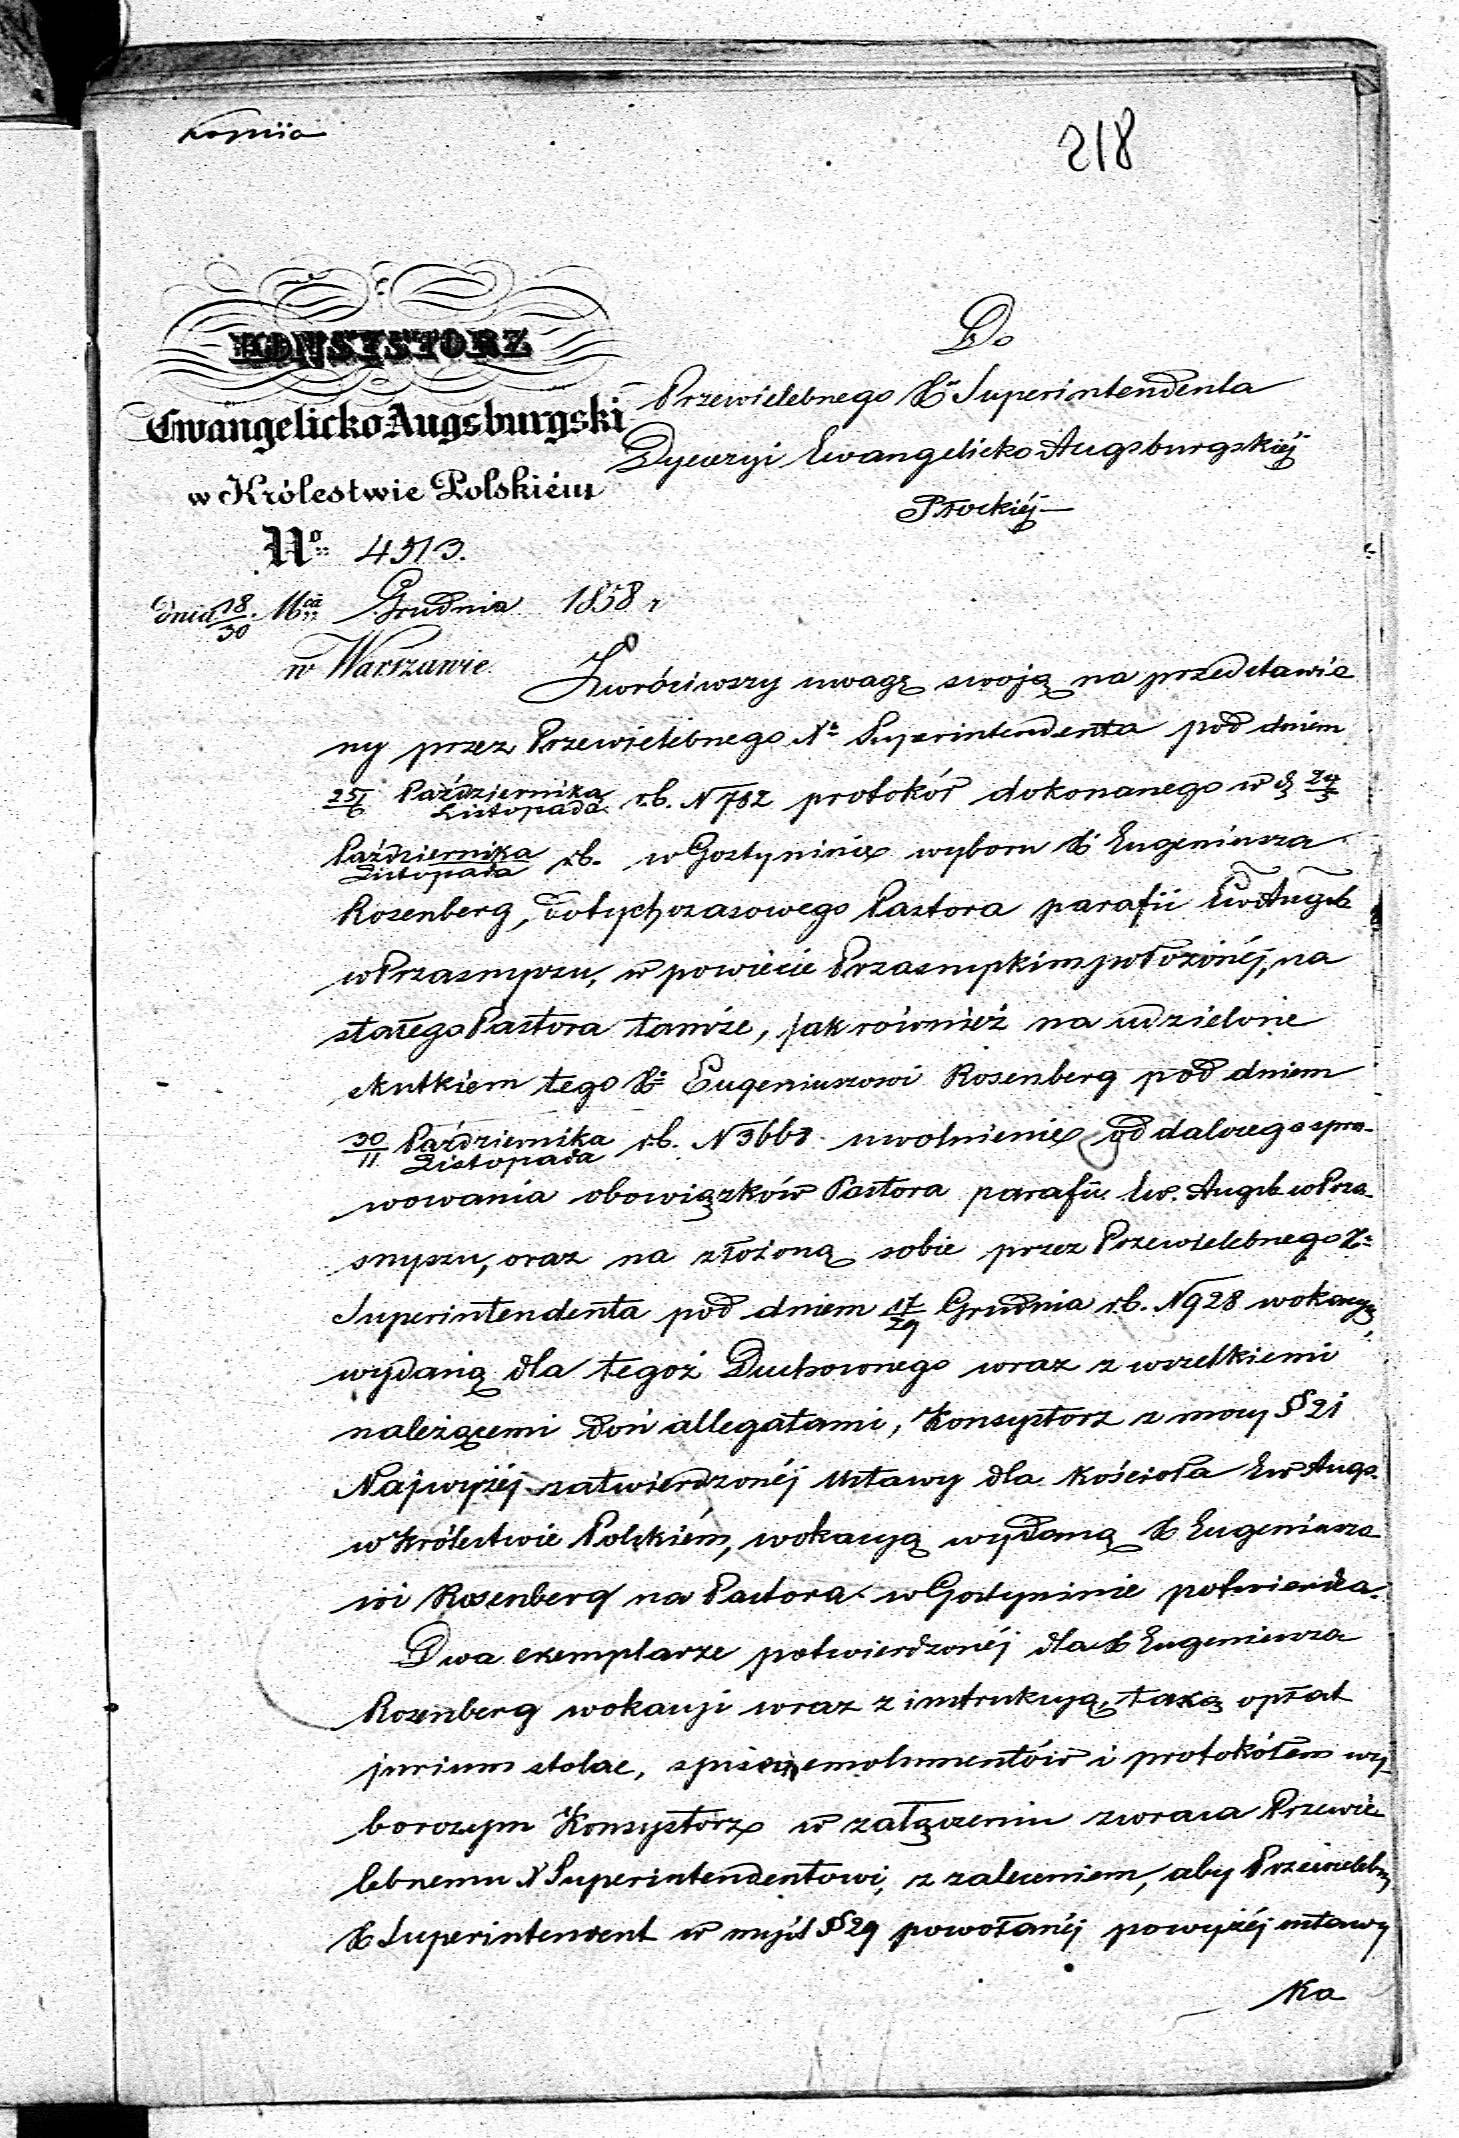 kopiia
218
KONSYSTORZ
Ewangelicko Augsburgski
w Królestwie Polskiém
No 4513.
dnia 18/30 Mca Grudnia 1858 r
w Warszawie.
Do
Przewielebnego X Superintendenta
Dyecezyi Ewangelicko Augsburgskiéj
Płockiéj
Zwróciwszy uwagę swoją na przedstawio
ny przez Przewielebnego X Superintendenta pod dniem
25/6 Października/Listopada r.b. N 782 protokół dokonanego w d 24/5
Października/Listopada r.b. w Gostyninie wyboru X Eugeniusza
Rosenberg, dotychczasowego Pastora parafii Ew Augsb
w Przasnyszu, w powiecie Przasnyskim położonéj, na
stałego Pastora tamże, jak również na udzielone
skutkiem tego X Eugeniuszowi Rosenberg pod dniem
30/11 Października/Listopada r.b. N 3663 uwolnienie od dalszego spra-
wowania obowiązków Pastora parafii Ew. Augsb w Prza-
snyszu, oraz na złożoną sobie przez Przewielebnego X
Superintendenta pod dniem 17/29 Grudnia r.b. N 928 wokacyę,
wydaną dla tegoż Duchownego wraz z wszelkiemi
należącemi doń allegatami, Konsystorz z mocy § 21
Najwyżéj zatwierdzonéj Ustawy dla Kościoła Ew Augs.
w Królestwie Polskiém, wokacyą wydaną X Eugeniuszo
wi Rosenberg na Pastora w Gostyninie potwierdza.
Dwa exemplarze potwierdzonéj dla X Eugeniusza
Rosenberg wokacyi wraz z instrukcyą, taxą opłat
jurium stolae, spisem emolumentów i protokółem wy-
borczym Konsystorz w załączeniu zwraca Przewie
lebnemu X Superintendentowi, z zaleceniem, aby Przewielebny
X Superintendent w myśl § 29 powołanéj powyżéj ustawy
Ka